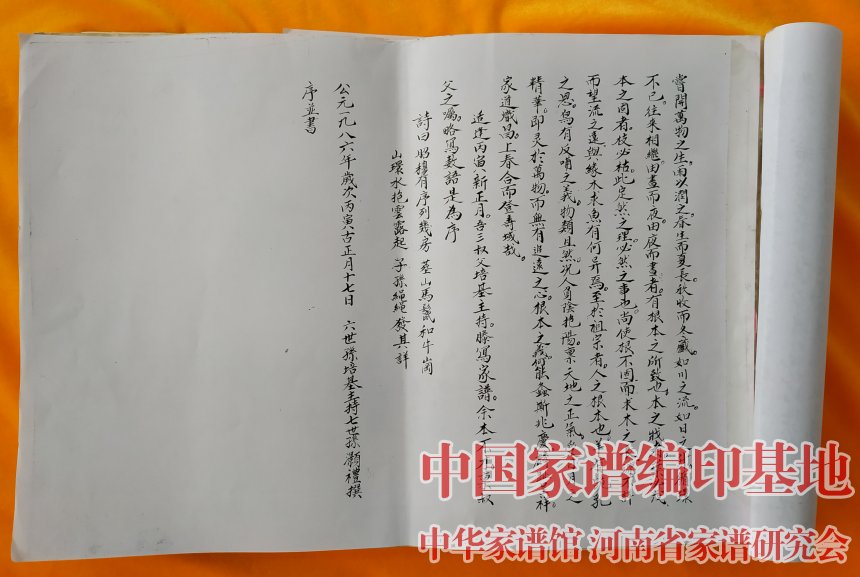 嘗聞萬物之生雨以潤之春生而夏長秋收而冬藏如川之流如日之
不已往來相繼由晝而夜由夜而晝者有根本之所致也本之
本之固者枝必枯此定然之理必然之事也尚使根不固而求木之
而望流之遠與緣木求魚有何异焉至於祖宗者人之根本也
之恩烏有反哺之義物類且然況人負陰抱陽禀天地之正氣
精華即灵於萬物而無有追遠之心根本之
家道熾昌上春台而登壽域哉
造逢丙寅八新正月吾三叔父培基主持謄寫家譜余本
父之囑略寫數語是為序
詩曰 昭穆有序列幾房 墓山馬鬣和牛崗
山環水抱雲露起 子孫繩繩發其祥
公元一九八六年歲次丙寅八古正月十七日 六世孫培基主持七世孫顏禮撰
序並書
中国家谱编印基地
中华家谱馆 河南省家谱研究会